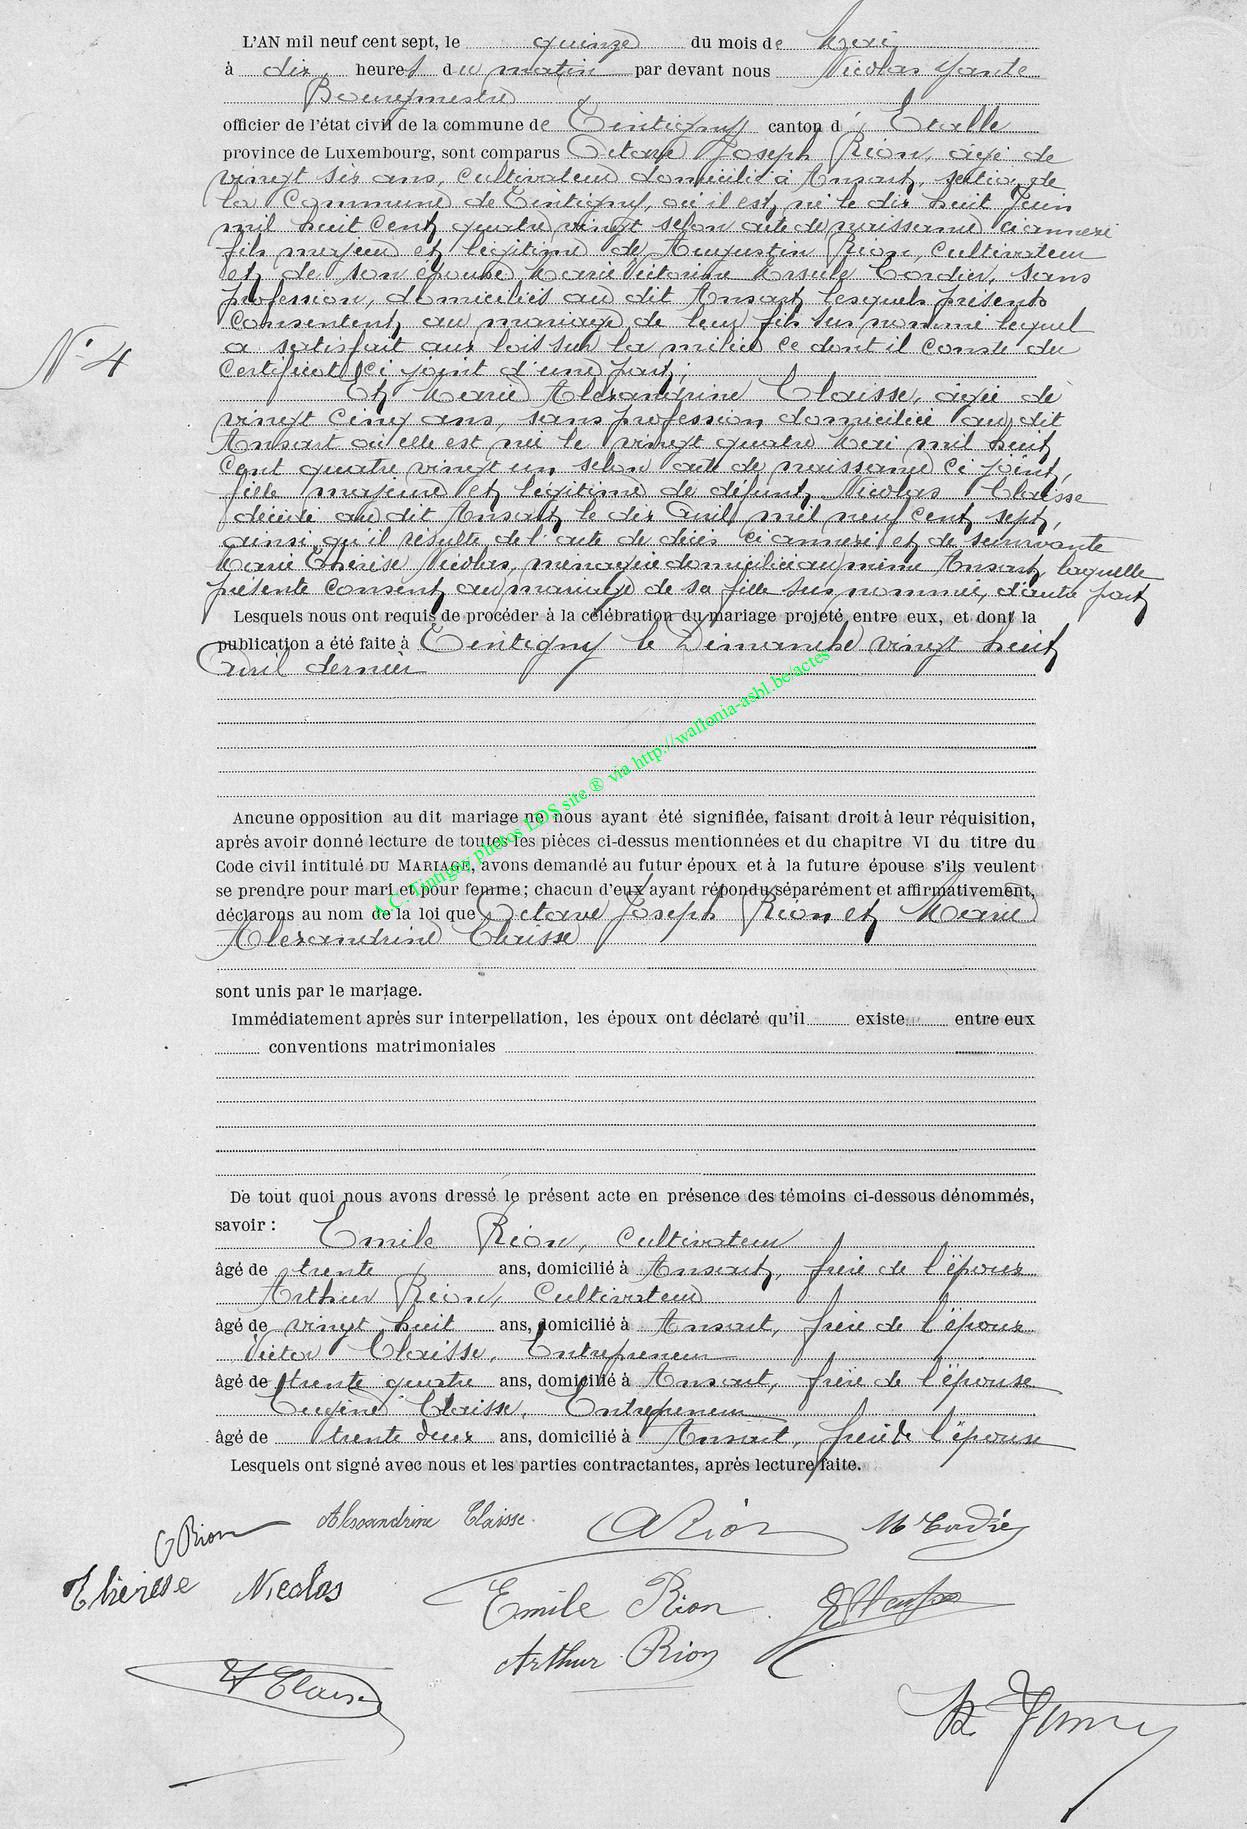 L'AN mil neuf cent sept, le quinze du mois de Mai
à dix heures du matin par devant nous Nicolas
Bourgmestre
officier de l'état civil de la commune de Tintigny canton d' Etalle
province de Luxembourg, sont comparus Octave Joseph Rion, âgé de
vingt six ans, cultivateur domicilié à Ansart, section de
la Commune de Tintigny, où il est né le dix huit Juin
mil huit cent quatre vingt selon acte de naissance ci annexé
fils majeur et légitime de Augustin Rion, cultivateur
et de son épouse Marie Victorine Ursule Cordier, sans
profession, domiciliés au dit Ansart lesquels présents
consentent au mariage de leur fils sus nommé lequel
N° 4
a satisfait aux lois sur la milice ce dont il conste du
certificat ci joint d'une part;
Et Marie Alexandrine Claisse, âgée de
vingt cinq ans, sans profession domiciliée au dit
Ansart où elle est née le vingt quatre Mai mil huit
cent quatre vingt un selon acte de naissance ci joint,
fille majeure et légitime de défunt Nicolas Claisse
décédé au dit Ansart le dix Avril mil neuf cent sept,
ainsi qu'il résulte de l'acte de décès ci annexé et de survivante
Marie Thérèse Nicolas, ménagère domiciliée au même Ansart, laquelle
présente consent au mariage de sa fille sus nommée, d'autre part
Lesquels nous ont requis de procéder à la célébration du mariage projeté entre eux, et dont la
publication a été faite à Tintigny le Dimanche vingt huit
Avril dernier
A.C. Tintigny photos LDS site ® via http://wallonia-asbl.be/actes
Aucune opposition au dit mariage ne nous ayant été signifiée, faisant droit à leur réquisition,
après avoir donné lecture de toutes les pièces ci-dessus mentionnées et du chapitre VI du titre du
Code civil intitulé DU MARIAGE, avons demandé au futur époux et à la future épouse s'ils veulent
se prendre pour mari et pour femme; chacun d'eux ayant répondu séparément et affirmativement,
déclarons au nom de la loi que Octave Joseph Rion et Marie
Alexandrine Claisse
sont unis par le mariage.
Immédiatement après sur interpellation, les époux ont déclaré qu'il existe entre eux
conventions matrimoniales
De tout quoi nous avons dressé le présent acte en présence des témoins ci-dessous dénommés,
savoir : Emile Rion, cultivateur
âgé de trente ans, domicilié à Ansart, frère de l'époux
Arthur Rion, Cultivateur
âgé de vingt huit ans, domicilié à Ansart, frère de l'époux
Victor Claisse, Entrepreneur
âgé de trente quatre ans, domicilié à Ansart, frère de l'épouse
Eugène Claisse, Entrepreneur
âgé de trente deux ans, domicilié à Ansart, frère de l'épouse
Lesquels ont signé avec nous et les parties contractantes, après lecture faite.
O Rion Alexandrine Claisse A Rion M Cordier
Thérèse Nicolas Emile Rion E Claisse
Arthur Rion
V Claisse